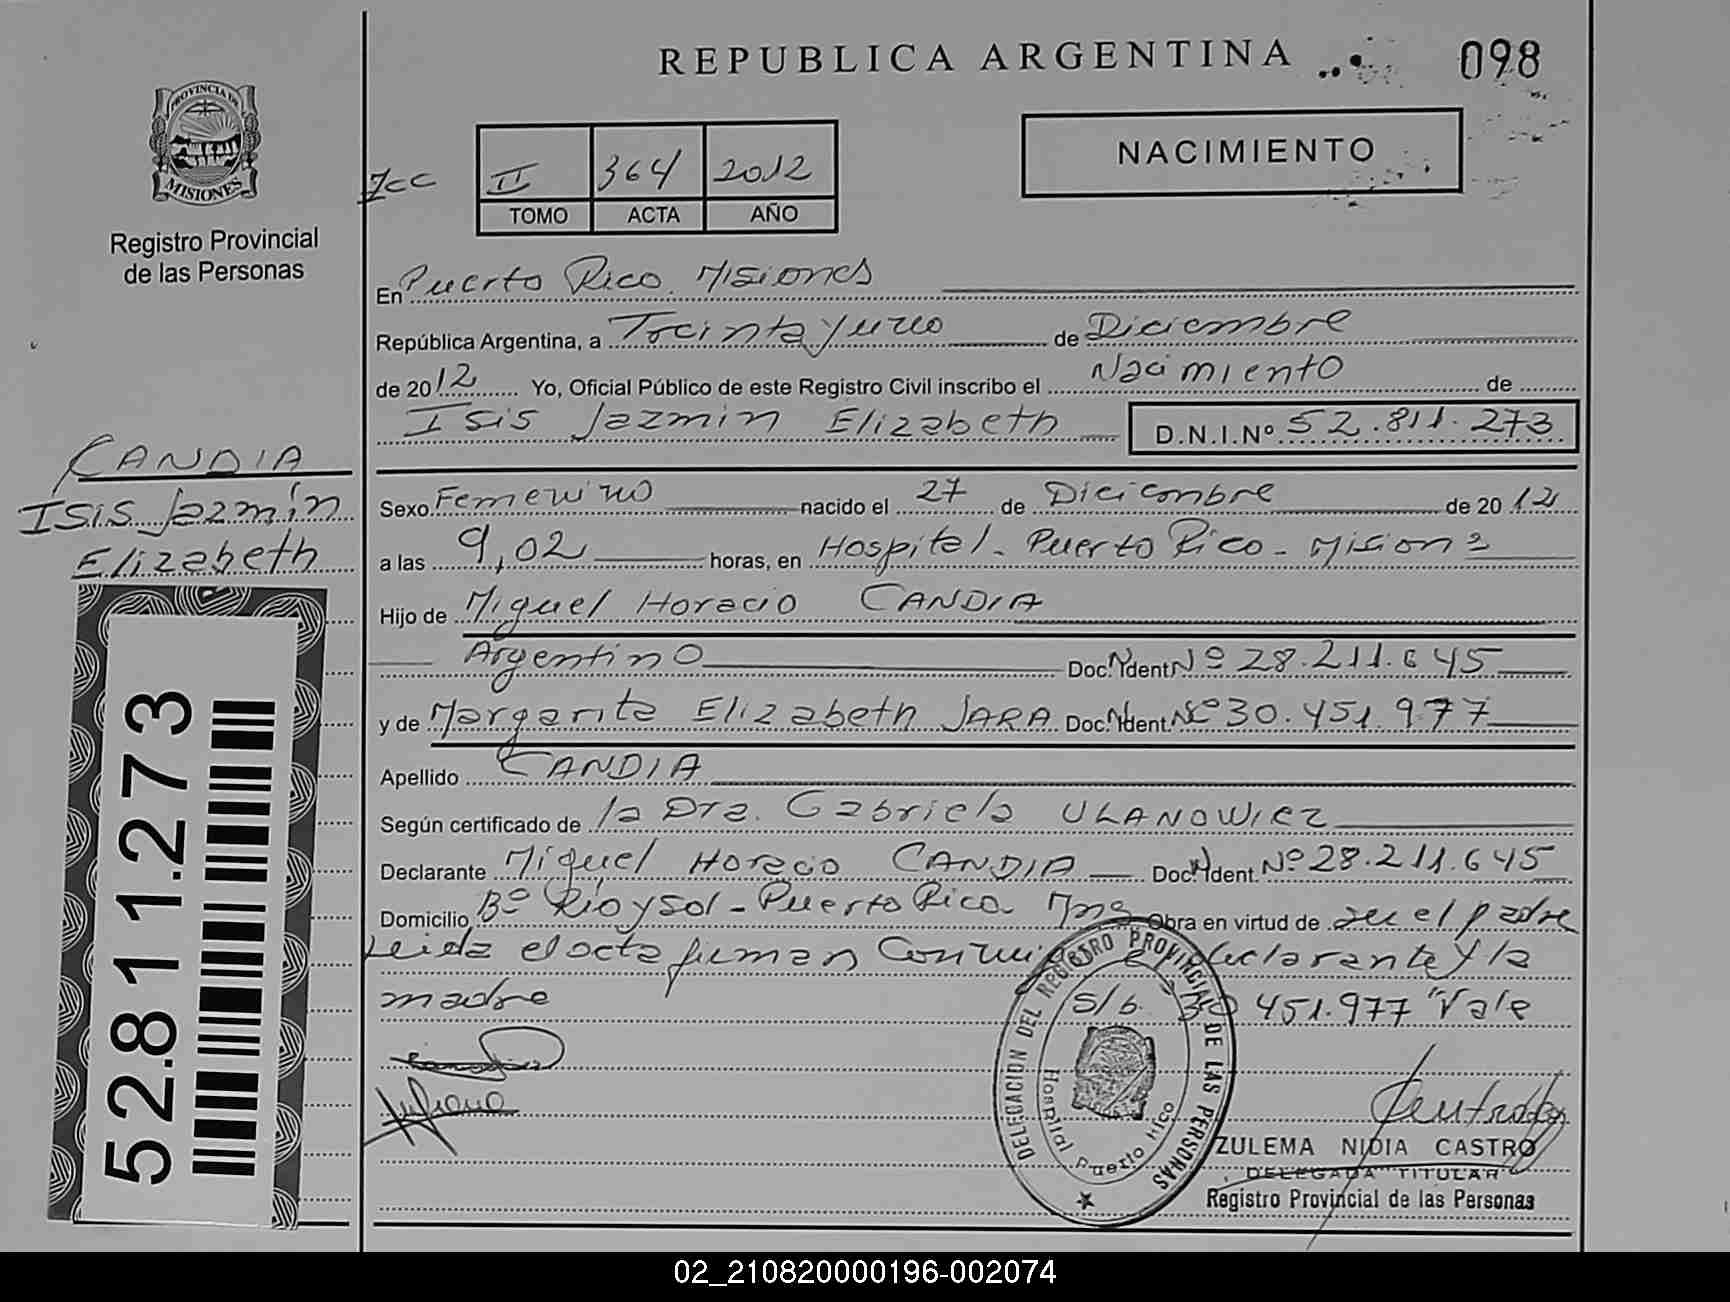 REPUBLICA ARGENTINA
098
PROVINCIA DE
MISIONES
Registro Provincial
de las Personas
NACIMIENTO
II 364 2012
TOMO ACTA AÑO
En Puerto Rico. Misiones
República Argentina, a Treinta y uno de Diciembre
de 2012 Yo, Oficial Público de este Registro Civil inscribo el Nacimiento de
Isis Jazmin Elizabeth D.N.I.Nº 52.811.273
CANDIA
Isis Jazmín
Elizabeth
Sexo Femenino nacido el 27 de Diciembre de 2012
a las 9,02 horas, en Hospital - Puerto Rico - Misiones
Hijo de Miguel Horacio CANDIA
Argentino Doc. Ident. Nº 28.211.645
y de Margarita Elizabeth JARA Doc. Ident. Nº 30.451.977
Apellido CANDIA
Según certificado de la Dra. Gabriela ULANOWIEZ
Declarante Miguel Horacio CANDIA Doc. Ident. Nº 28.211.645
Domicilio Bº Río y Sol - Puerto Rico - Mnes Obra en virtud de ser el padre
Leida el acta firman Conmigo el declarante y la
madre S/b. 30 451.977 "Vale
52.811.273
DELEGACION DEL REGISTRO PROVINCIAL DE LAS PERSONAS
Hospital Puerto Rico
ZULEMA NIDIA CASTRO
DELEGADA TITULAR
Registro Provincial de las Personas
02_210820000196-002074